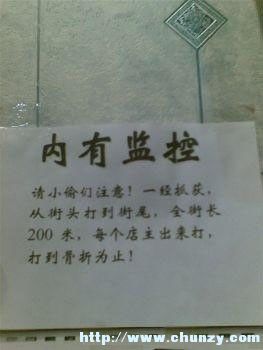 内有监控
请小偷们注意！一经抓获，
从街头打到街尾，全街长
200 米，每个店主出来打，
打到骨折为止！
http://www.chunzy.com